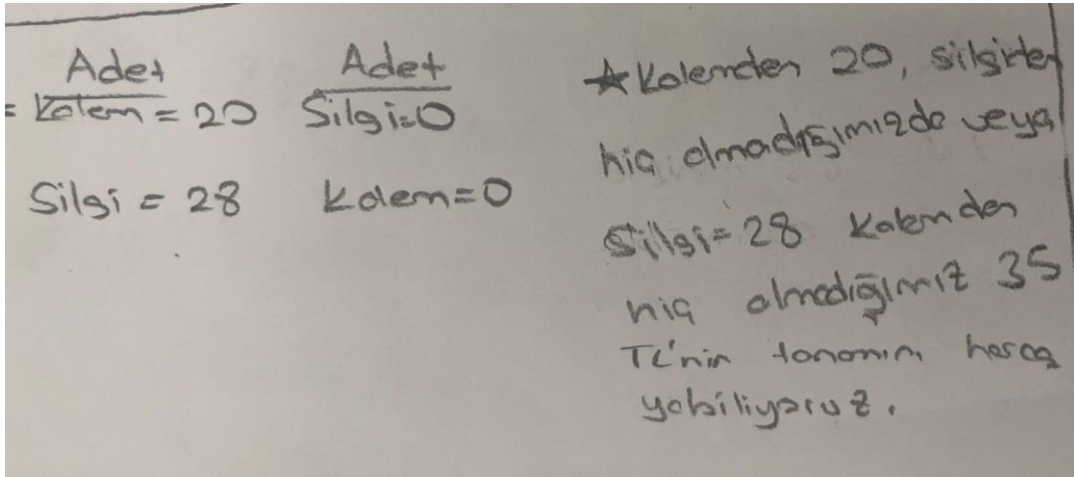 Adet Adet
= Kalem = 20 Silgi=0
Silgi = 28 Kalem=0
★Kalemden 20, silgiden
hiç almadığımızda veya
Silgi=28 Kalemden
hiç almadığımız 35
TL'nin tamamını harca
yabiliyoruz.